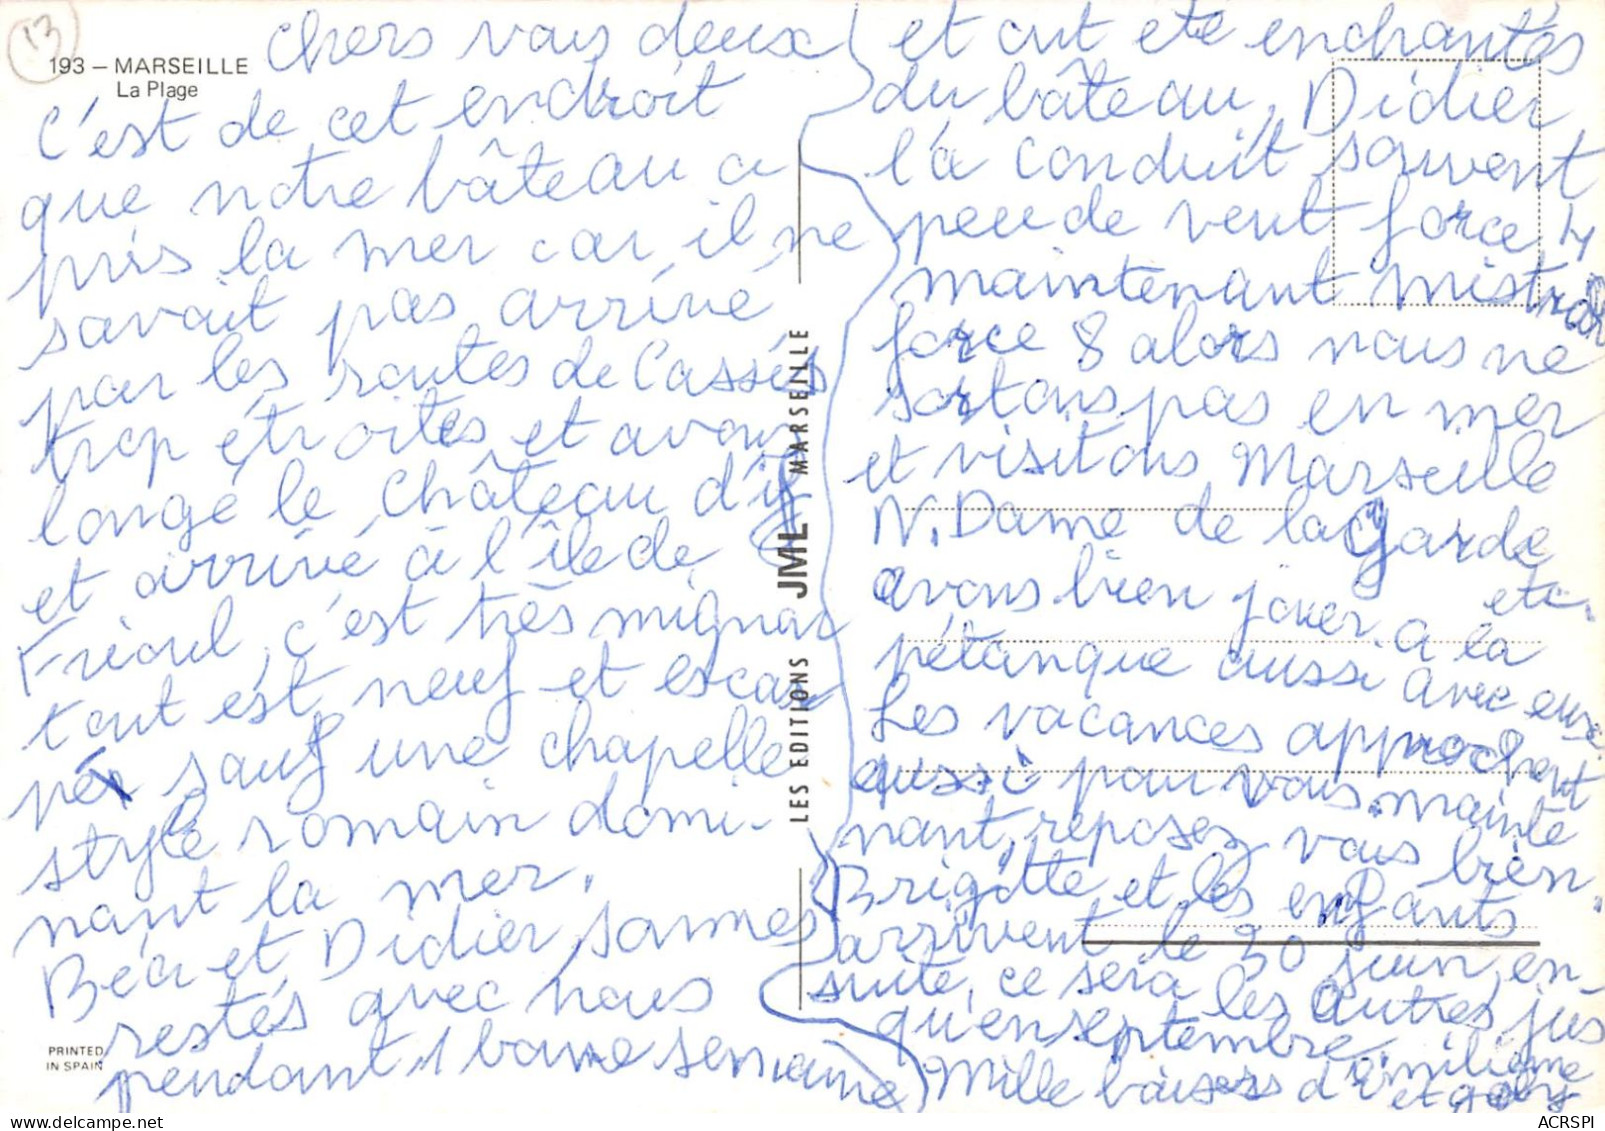 13
193 – MARSEILLE
La Plage
Chers vous deux
C'est de cet endroit
que notre bâteau a
pris la mer car il ne
savait pas arrivé
par les routes de Cassis
trop étroites et avons
longé le Château d'if
et arrivé à l'île de
Frioul, c'est très mignon
tout est neuf et escar
pé sauf une chapelle
style romain domi-
nant la mer.
Béa et Didier sommes
restés avec nous
pendant 1 bonne semaine
LES EDITIONS JML MARSEILLE
PRINTED
IN SPAIN
et ont été enchantés
du bâteau, Didier
l'a conduit souvent
peu de vent force 4
maintenant mistral
force 8 alors nous ne
sortons pas en mer
et visitons Marseille
N. Dame de la Garde
etc.
avons bien jouer à la
pétanque aussi avec eux.
Les vacances approchent
aussi pour vous mainte
nant, reposez vous bien.
Brigitte et les enfants
arrivent le 30 juin, en-
suite, ce sera les autres jus
qu'en septembre
Mille baisers d'Emilienne
et Gaby
ACRSPI